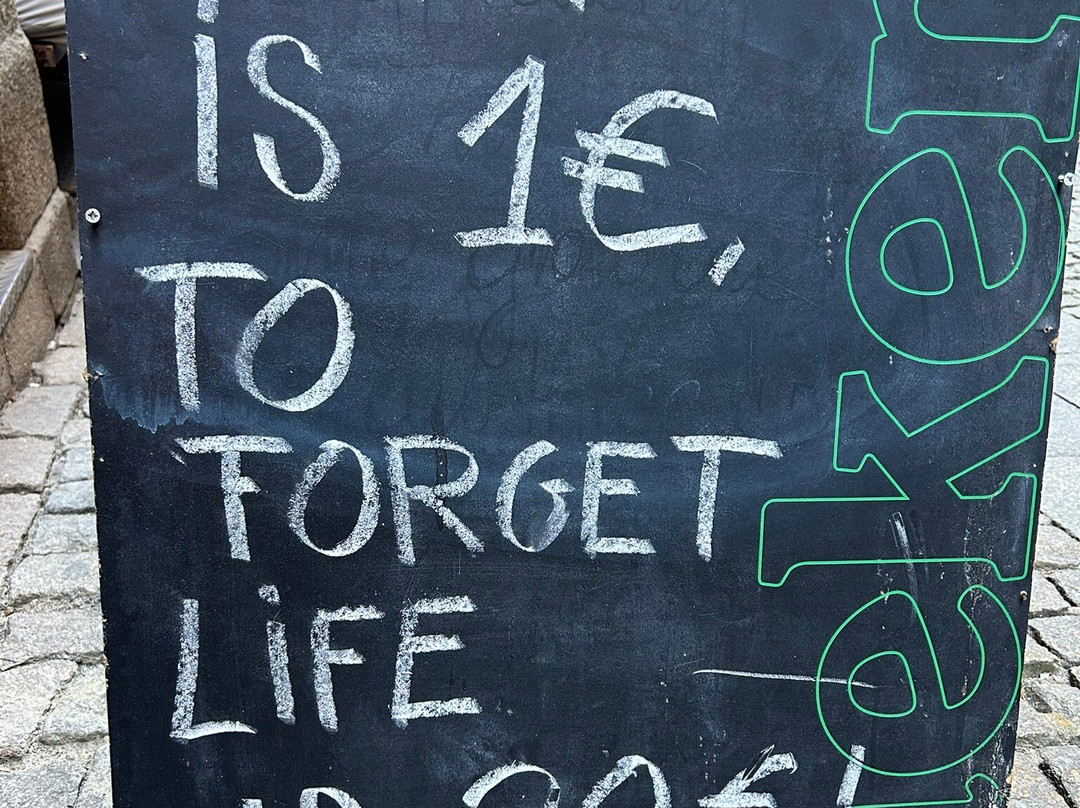 iS 1€,
TO
FORGET
LiFE
20€!
eken